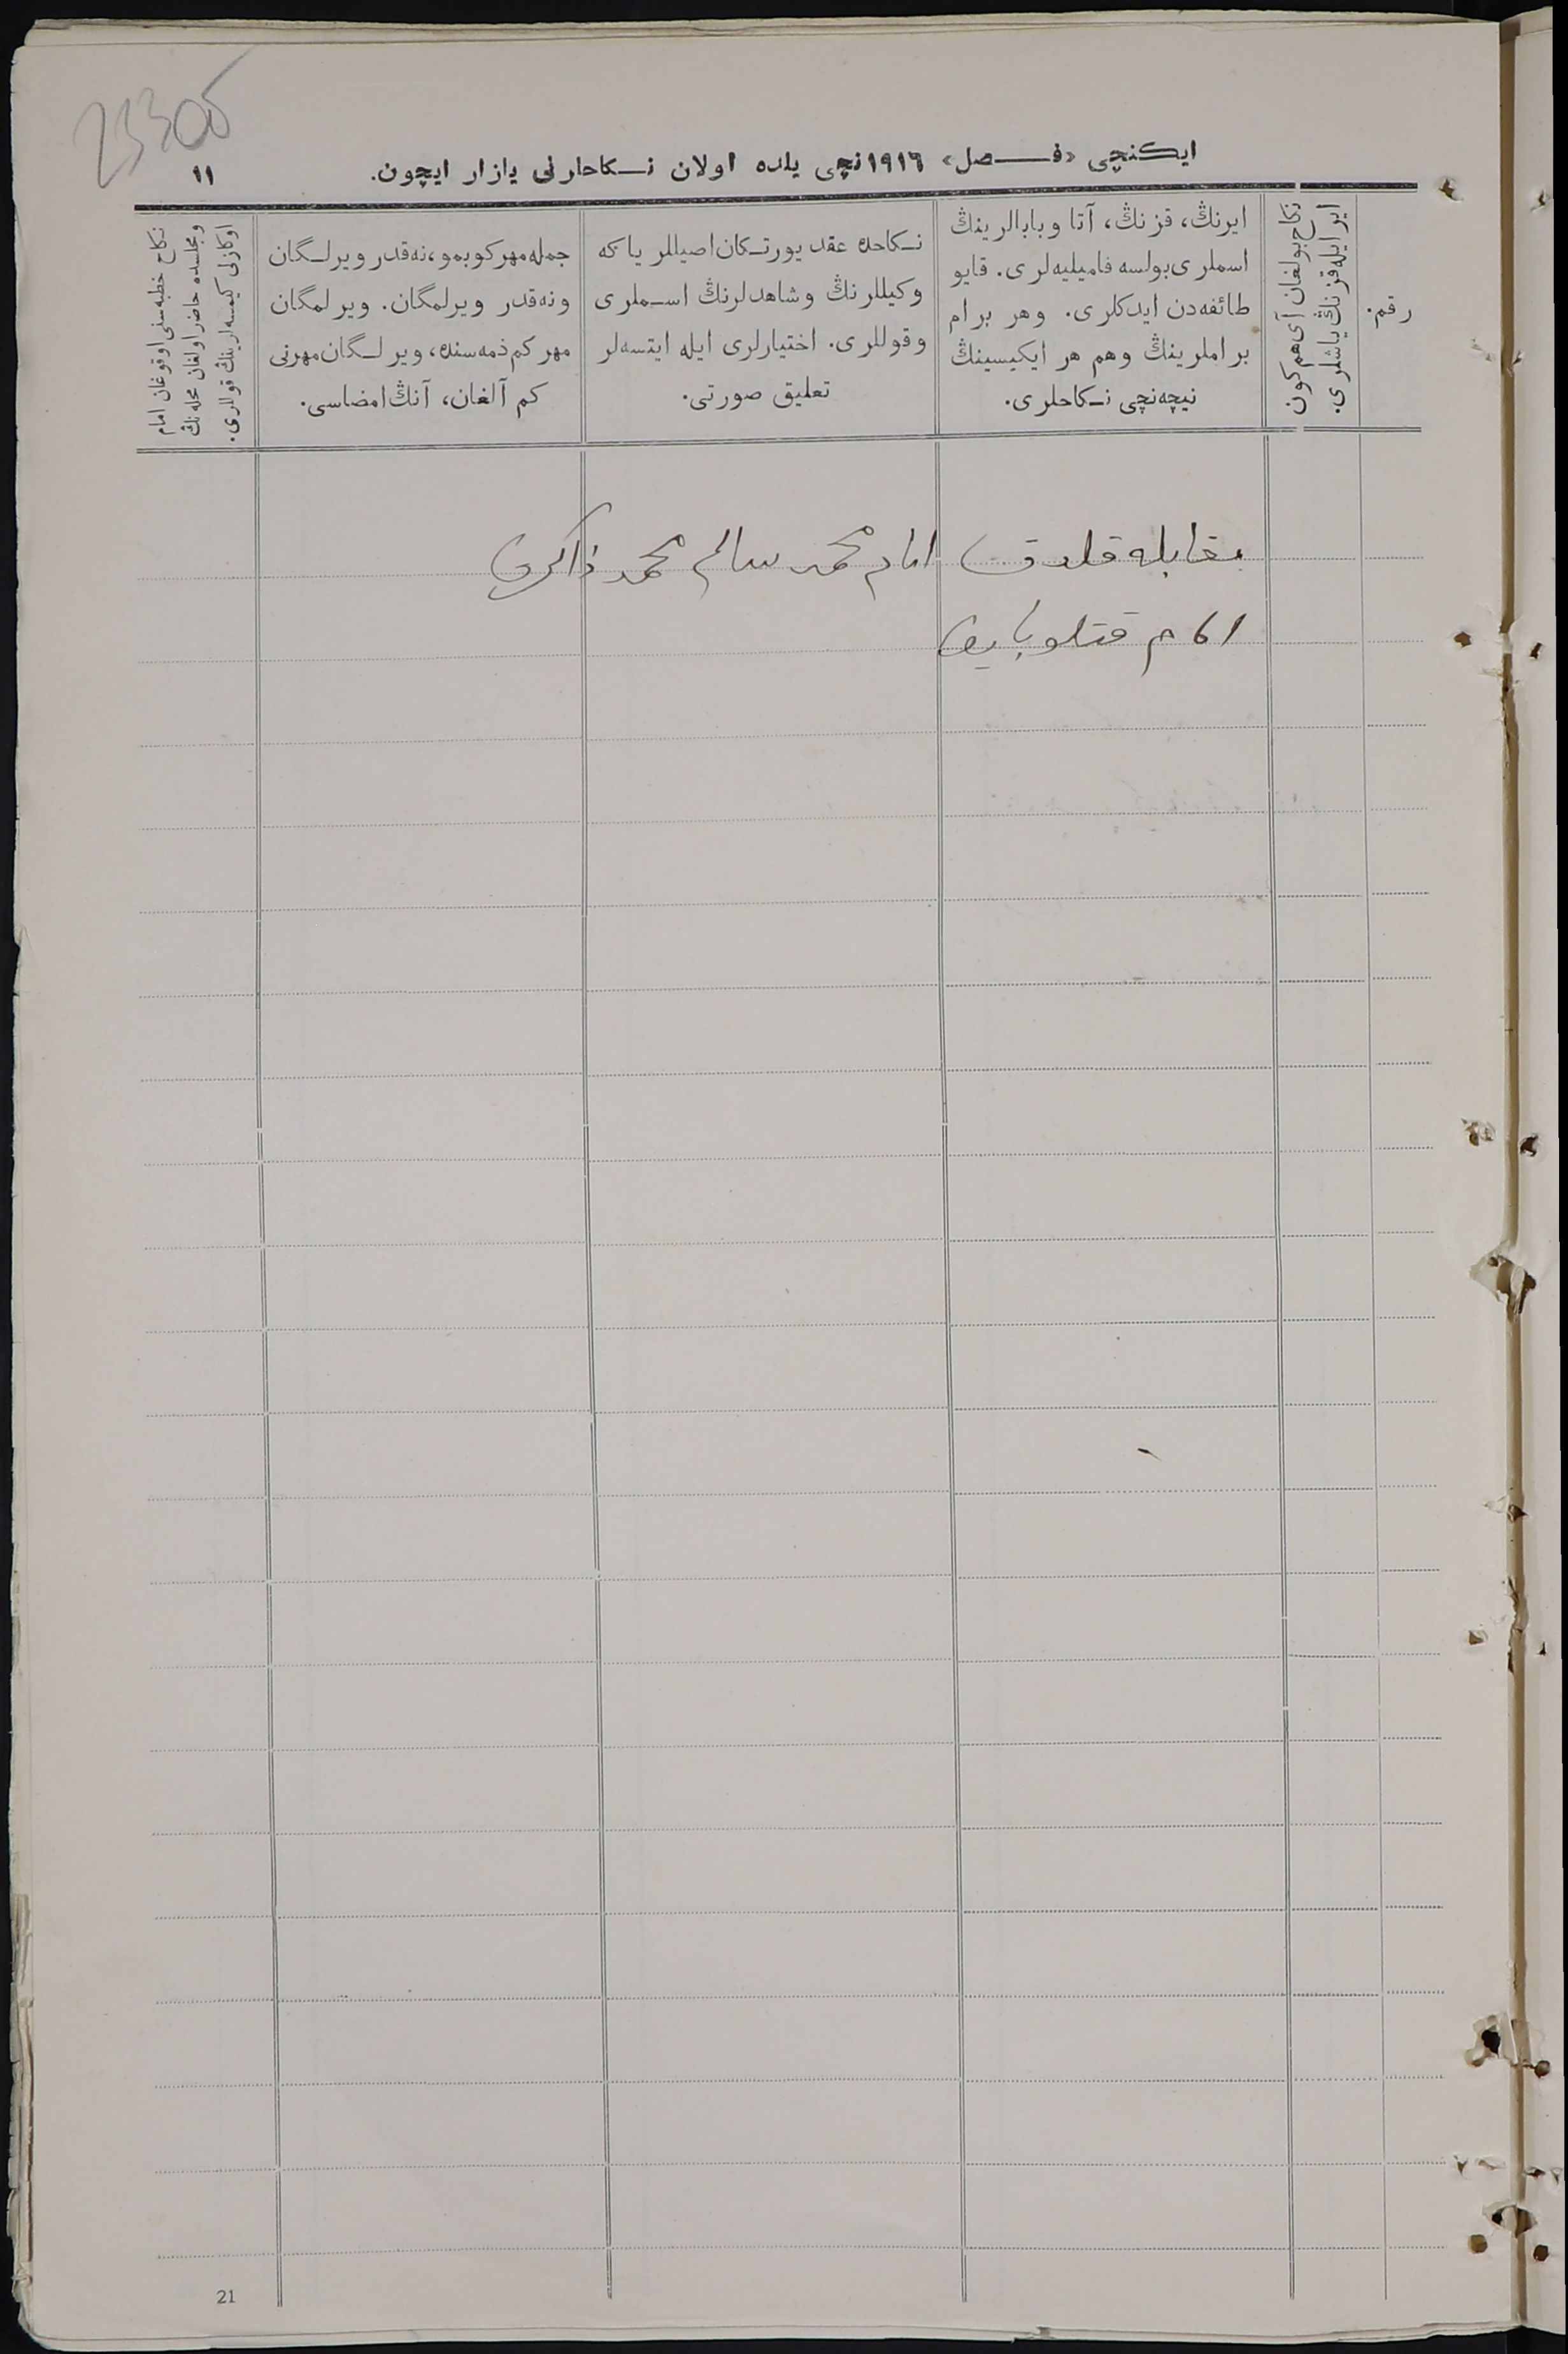 23305
ایکنچی «فــصل» ۱۹۱٦نچی یلده اولان نـکاحلارنی یازار ایچون.
۱۱
رقم.
نکاح بولغان آی هم کون
ایر ایله قزنڭ یاشلری.
ایرنڭ، قزنڭ، آتا وبابالرینڭ
اسملری بولسه فامیلیه‌لری. قایو
طائفه‌دن ایدکلری. وهر برام
براملرینڭ وهم هر ایکیسینڭ
نیچه‌نچی نـکاحلری.
نـکاحده عقد یورتـکان اصیللر یاکه
وکیللرنڭ وشاهدلرنڭ اسـملری
وقوللری. اختیارلری ایله ایتسه‌لر
تعلیق صورتی.
جمله مهر کوبمو، نه‌قدر ویرلـگان
ونه‌قدر ویرلمگان. ویرلمگان
مهر کم ذمه‌سنده، ویرلـگان مهرنی
کم آلغان، آنڭ امضاسی.
نکاح خطبه‌سنی اوقوغان امام
ومجلسده حاضر اولغان محله‌نڭ
اوکازنی کیمسه‌لرینڭ قوللری.
مقابله قلدق امام محمد سالم محمد ذاکری
امام قتلوبایف
21